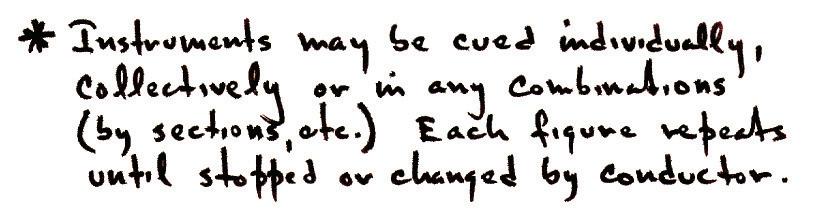 * Instruments may be cued individually,
collectively or in any combinations
(by sections, etc.) Each figure repeats
until stopped or changed by conductor.